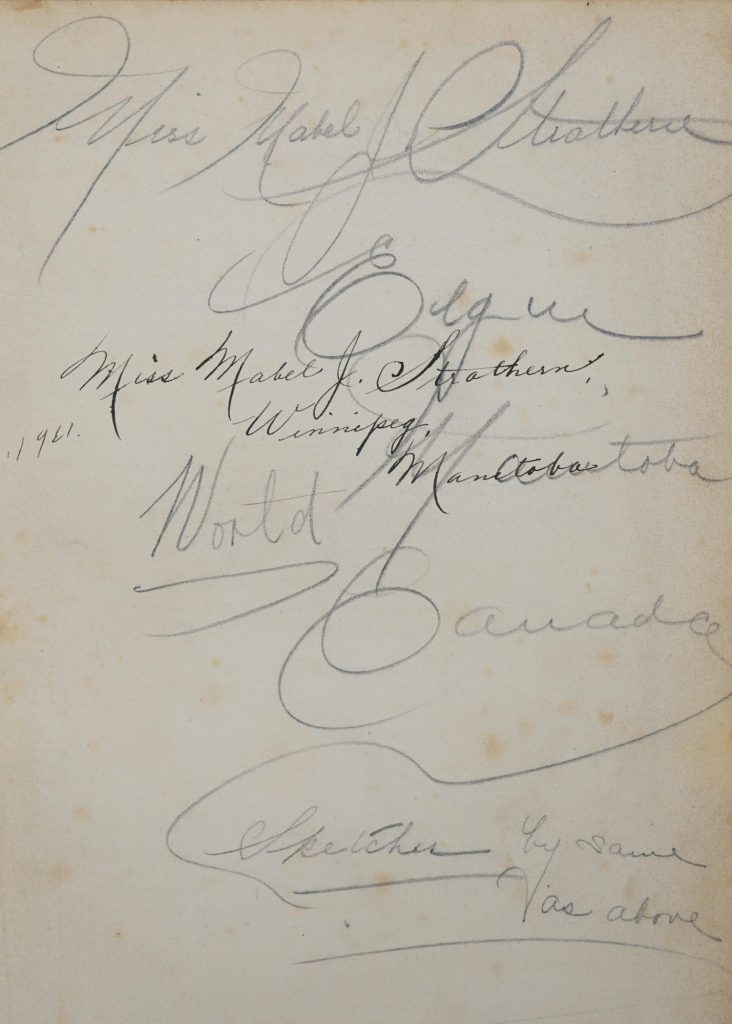 Miss Mabel J Strathern
Elgin
Miss Mabel J. Strathern,
Winnipeg,
Manitoba
Manitoba
World
Canada
Sketches by same
as above